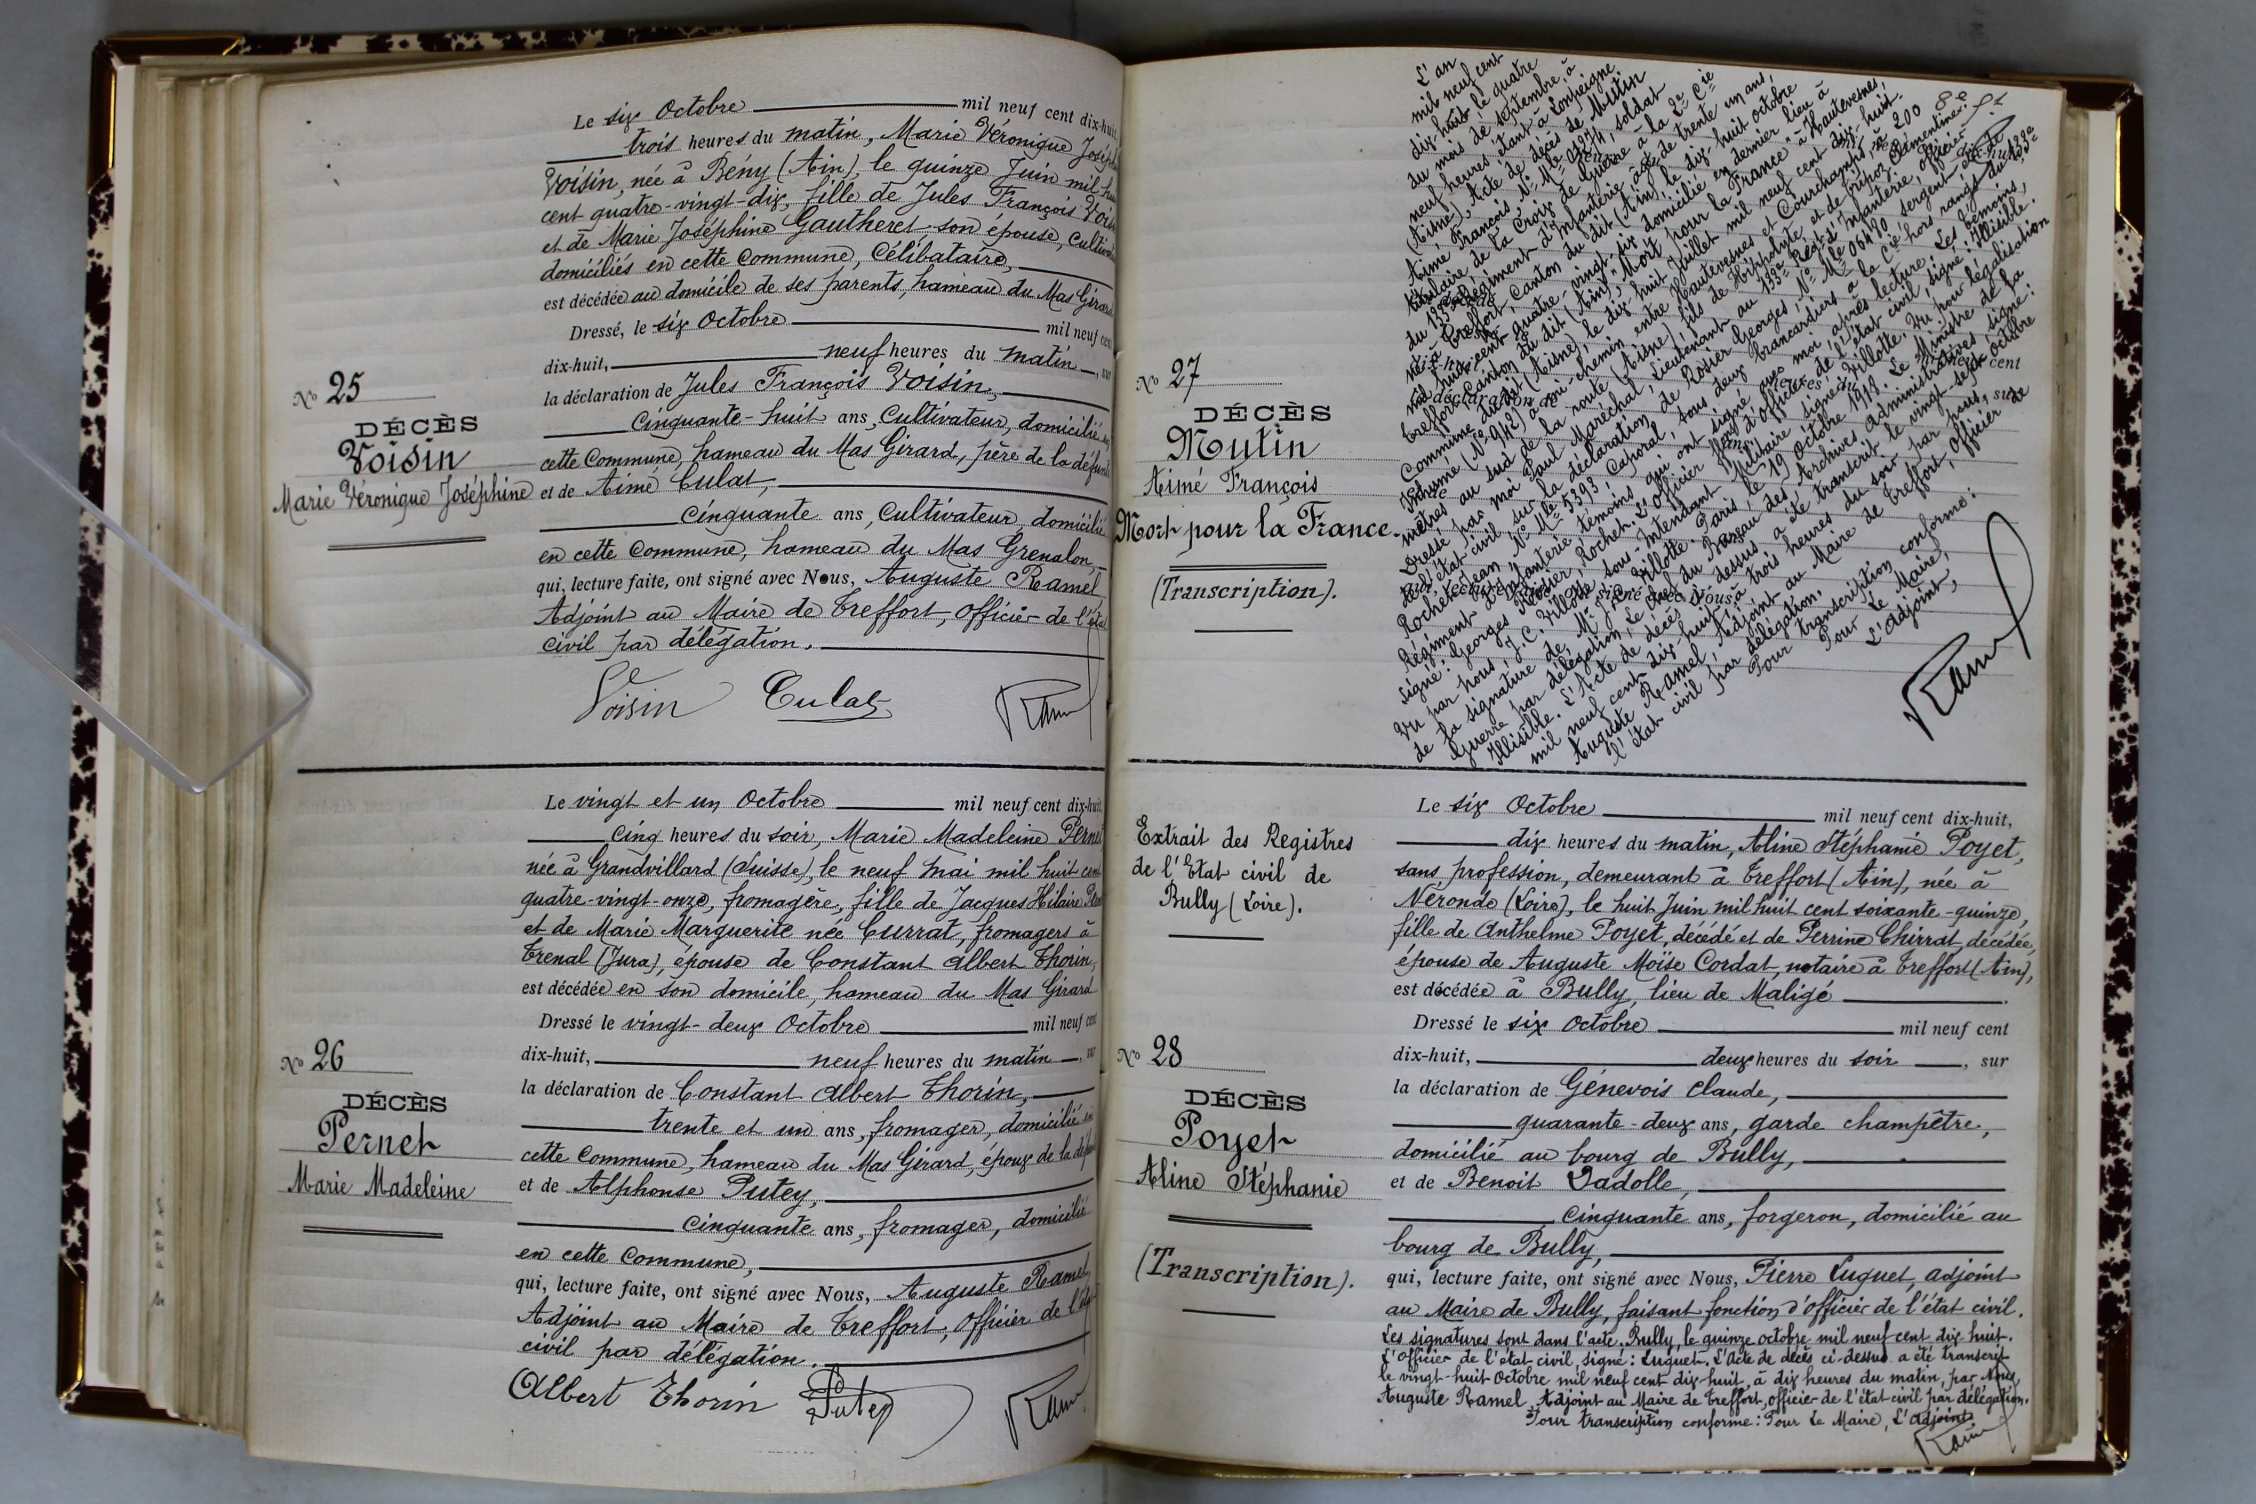 Le six Octobre mil neuf cent dix-huit
trois heures du matin, Marie Véronique Joséph
Voisin, née à Bény (Ain), le quinze Juin mil hui
cent quatre-vingt-dix, fille de Jules François Vois
et de Marie Joséphine Gautheret son épouse, cultiva
domiciliés en cette Commune, Célibataire,
est décédée au domicile de ses parents, hameau du Mas Girard
Dressé, le six Octobre mil neuf cen
dix-huit, neuf heures du matin, sur
No 25
la déclaration de Jules François Voisin,
DÉCÈS
cinquante-huit ans, Cultivateur, domicilié
Voisin
cette Commune, hameau du Mas Girard, père de la défun
Marie Véronique Joséphine
et de Aimé Culat,
cinquante ans, Cultivateur, domicilié
en cette Commune, hameau du Mas Grenalon,
qui, lecture faite, ont signé avec Nous, Auguste Ramel
Adjoint au Maire de Treffort, Officier de l'éta
civil par délégation.
Voisin Culat Ramel
Le vingt et un Octobre mil neuf cent dix-huit
cinq heures du soir, Marie Madeleine Perne
née à Grandvillard (Suisse), le neuf Mai mil huit cent
quatre-vingt-onze, fromagère, fille de Jacques Hilaire
et de Marie Marguerite née Currat, fromagers à
Trenal (Jura), épouse de Constant Albert Thorin,
est décédée en son domicile, hameau du Mas Girard
Dressé le vingt-deux Octobre mil neuf cent
No 26
dix-huit, neuf heures du matin, sur
DÉCÈS
la déclaration de Constant Albert Thorin,
Pernet
trente et un ans, fromager, domicilié en
Marie Madeleine
cette Commune, hameau du Mas Girard, époux de la défun
et de Alphonse Putey,
cinquante ans, fromager, domicilié
en cette Commune,
qui, lecture faite, ont signé avec Nous, Auguste Ramel,
Adjoint au Maire de Treffort, Officier de l'éta
civil par délégation.
Albert Thorin Putey Ramel
No 27
DÉCÈS
Mutin
Aimé François
Mort pour la France.
(Transcription).
L'an
mil neuf cent
dix-huit le quatre
du mois de septembre, à
neuf heures, étant à Bonneigne
(Aisne), Acte de décès de Mutin
Aimé François soldat
titulaire de la Croix de Guerre à la 2e Cie
du 133e Régiment d'Infanterie, âgé de trente un ans,
né à Treffort, Canton du dit (Ain), le dix huit octobre
mil huit cent quatre-vingt-dix domicilié en dernier lieu à
Treffort, Canton du dit (Ain), "Mort pour la France" à Hautevesnes,
Commune du dit (Aisne) le dix huit Juillet mil neuf cent dix-huit.
Inhumé (No 942) à mi-chemin entre Hautevesnes et Courchamps, à 200
mètres au sud de la route (Aisne), fils de Hippolyte et de Clémentine.
Dressé par moi Paul Maréchal, Lieutenant au 133e Régt d'Infanterie, officier
de l'état civil, sur la déclaration de Rosier Georges, No Mle 06490 sergent
Rochet Jean, No Mle 5393, Caporal, tous deux brancardiers à la Cie hors rang du 133e
Régiment d'Infanterie témoins qui ont signé avec moi, après lecture. Les témoins,
signé: Georges Rosier, Rochet. L'officier de l'état civil, signé: Illisible.
Vu par nous, J. C. Villotte, sous-Intendant Militaire signé, Villotte. Vu pour légalisation
de la signature de Mr Villotte. Paris, le 19 Octobre 1918. Le Ministre de la
Guerre par délégation, le Chef du Bureau des Archives administratives, signé:
Illisible. L'Acte de décès ci-dessus a été transcrit le vingt-sept octobre
mil neuf cent dix huit, à trois heures du soir par nous,
Auguste Ramel, Adjoint au Maire de Treffort, officier de
l'état civil par délégation.
Pour transcription conforme:
Pour le Maire,
L'adjoint,
Ramel
Extrait des Registres
de l'Etat civil de
Bully (Loire).
Le six Octobre mil neuf cent dix-huit,
dix heures du matin, Aline Stéphanie Poyet,
sans profession, demeurant à Treffort (Ain), née à
Néronde (Loire), le huit Juin mil huit cent soixante-quinze,
fille de Anthelme Poyet, décédé et de Perrine Chirrat, décédée,
épouse de Auguste Moïse Cordat, notaire à Treffort (Ain),
est décédée à Bully, lieu de Maligé
Dressé le six Octobre mil neuf cent
No 28
dix-huit, deux heures du soir, sur
DÉCÈS
la déclaration de Génevois Claude,
Poyet
quarante-deux ans, garde champêtre,
domicilié au bourg de Bully,
Aline Stéphanie
et de Benoit Dadolle,
cinquante ans, forgeron, domicilié au
bourg de Bully,
(Transcription).
qui, lecture faite, ont signé avec Nous, Pierre Luguet, adjoint
au Maire de Bully, faisant fonction d'officier de l'état civil.
Les signatures sont dans l'acte. Bully, le quinze octobre mil neuf cent dix huit.
L'Officier de l'état civil, signé: Luguet. L'Acte de décès ci-dessus a été transcrit
le vingt-huit Octobre mil neuf cent dix-huit, à dix heures du matin, par Nous,
Auguste Ramel, Adjoint au Maire de Treffort, officier de l'état civil par délégation.
Pour transcription conforme: Pour Le Maire, L'adjoint.
Ramel